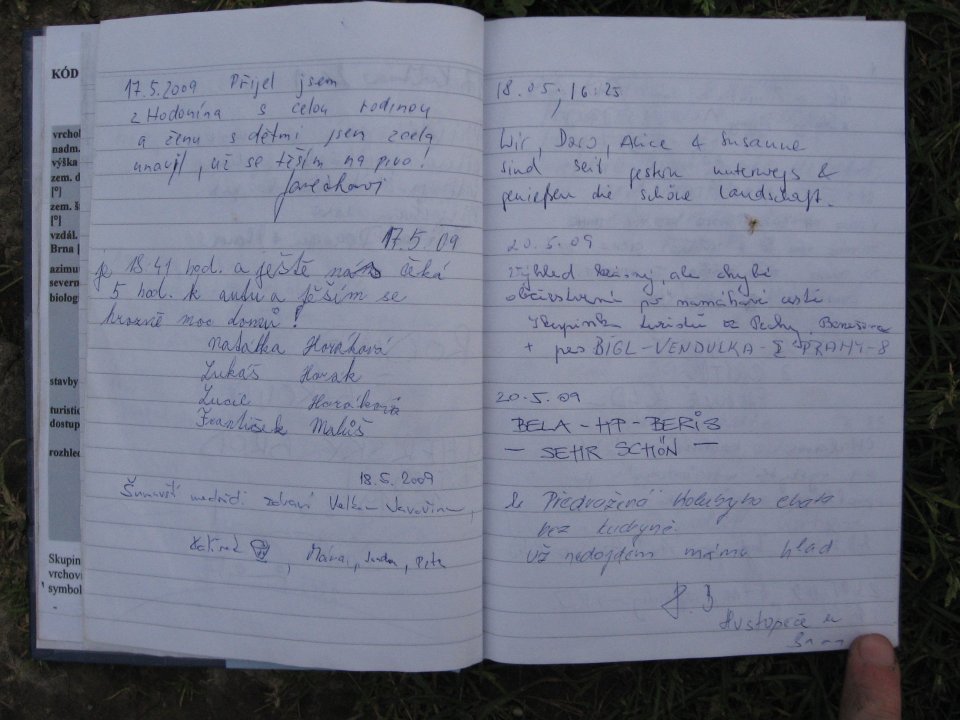 KÓD
vrchol
nadm.
výška
zem. d
[°]
zem. š
[°]
vzdál.
Brna [
azimu
severn
biolog
stavby
turistic
dostup
rozhle
Skupin
vrchovi
symbol
17.5.2009 Přijel jsem
z Hodonína s celou rodinou
a ženu s dětmi jsem zcela
unavil, už se těším na pivo!
17.5.09
je 18.41 hod. a ještě nás čeká
5 hod. k autu a těším se
hrozně moc domů!
Natálka Horáková
Lukáš Horák
Lucie Horáková
František Maluš
18.5.2009
Šumavští medvědi zdraví Velkou Javořinu,
, Mára, Janda, Petr
18.05, 16:25
Wir, Doro, Alice & Susanne
sind seit gestern unterwegs &
genießen die schöne Landschaft.
20.5.09
Výhled krásný, ale chybí
občerstvení po namáhavé cestě
Skupinka turistů z Prahy, Benešova
+ pes BÍGL-VENDULKA-Z PRAHY-8
20.5.09
BELA-HP-BERIS
- SEHR SCHÖN -
Předražená Holubyho chata
bez kuchyně.
Už nedojdem máme hlad
Hustopeče u